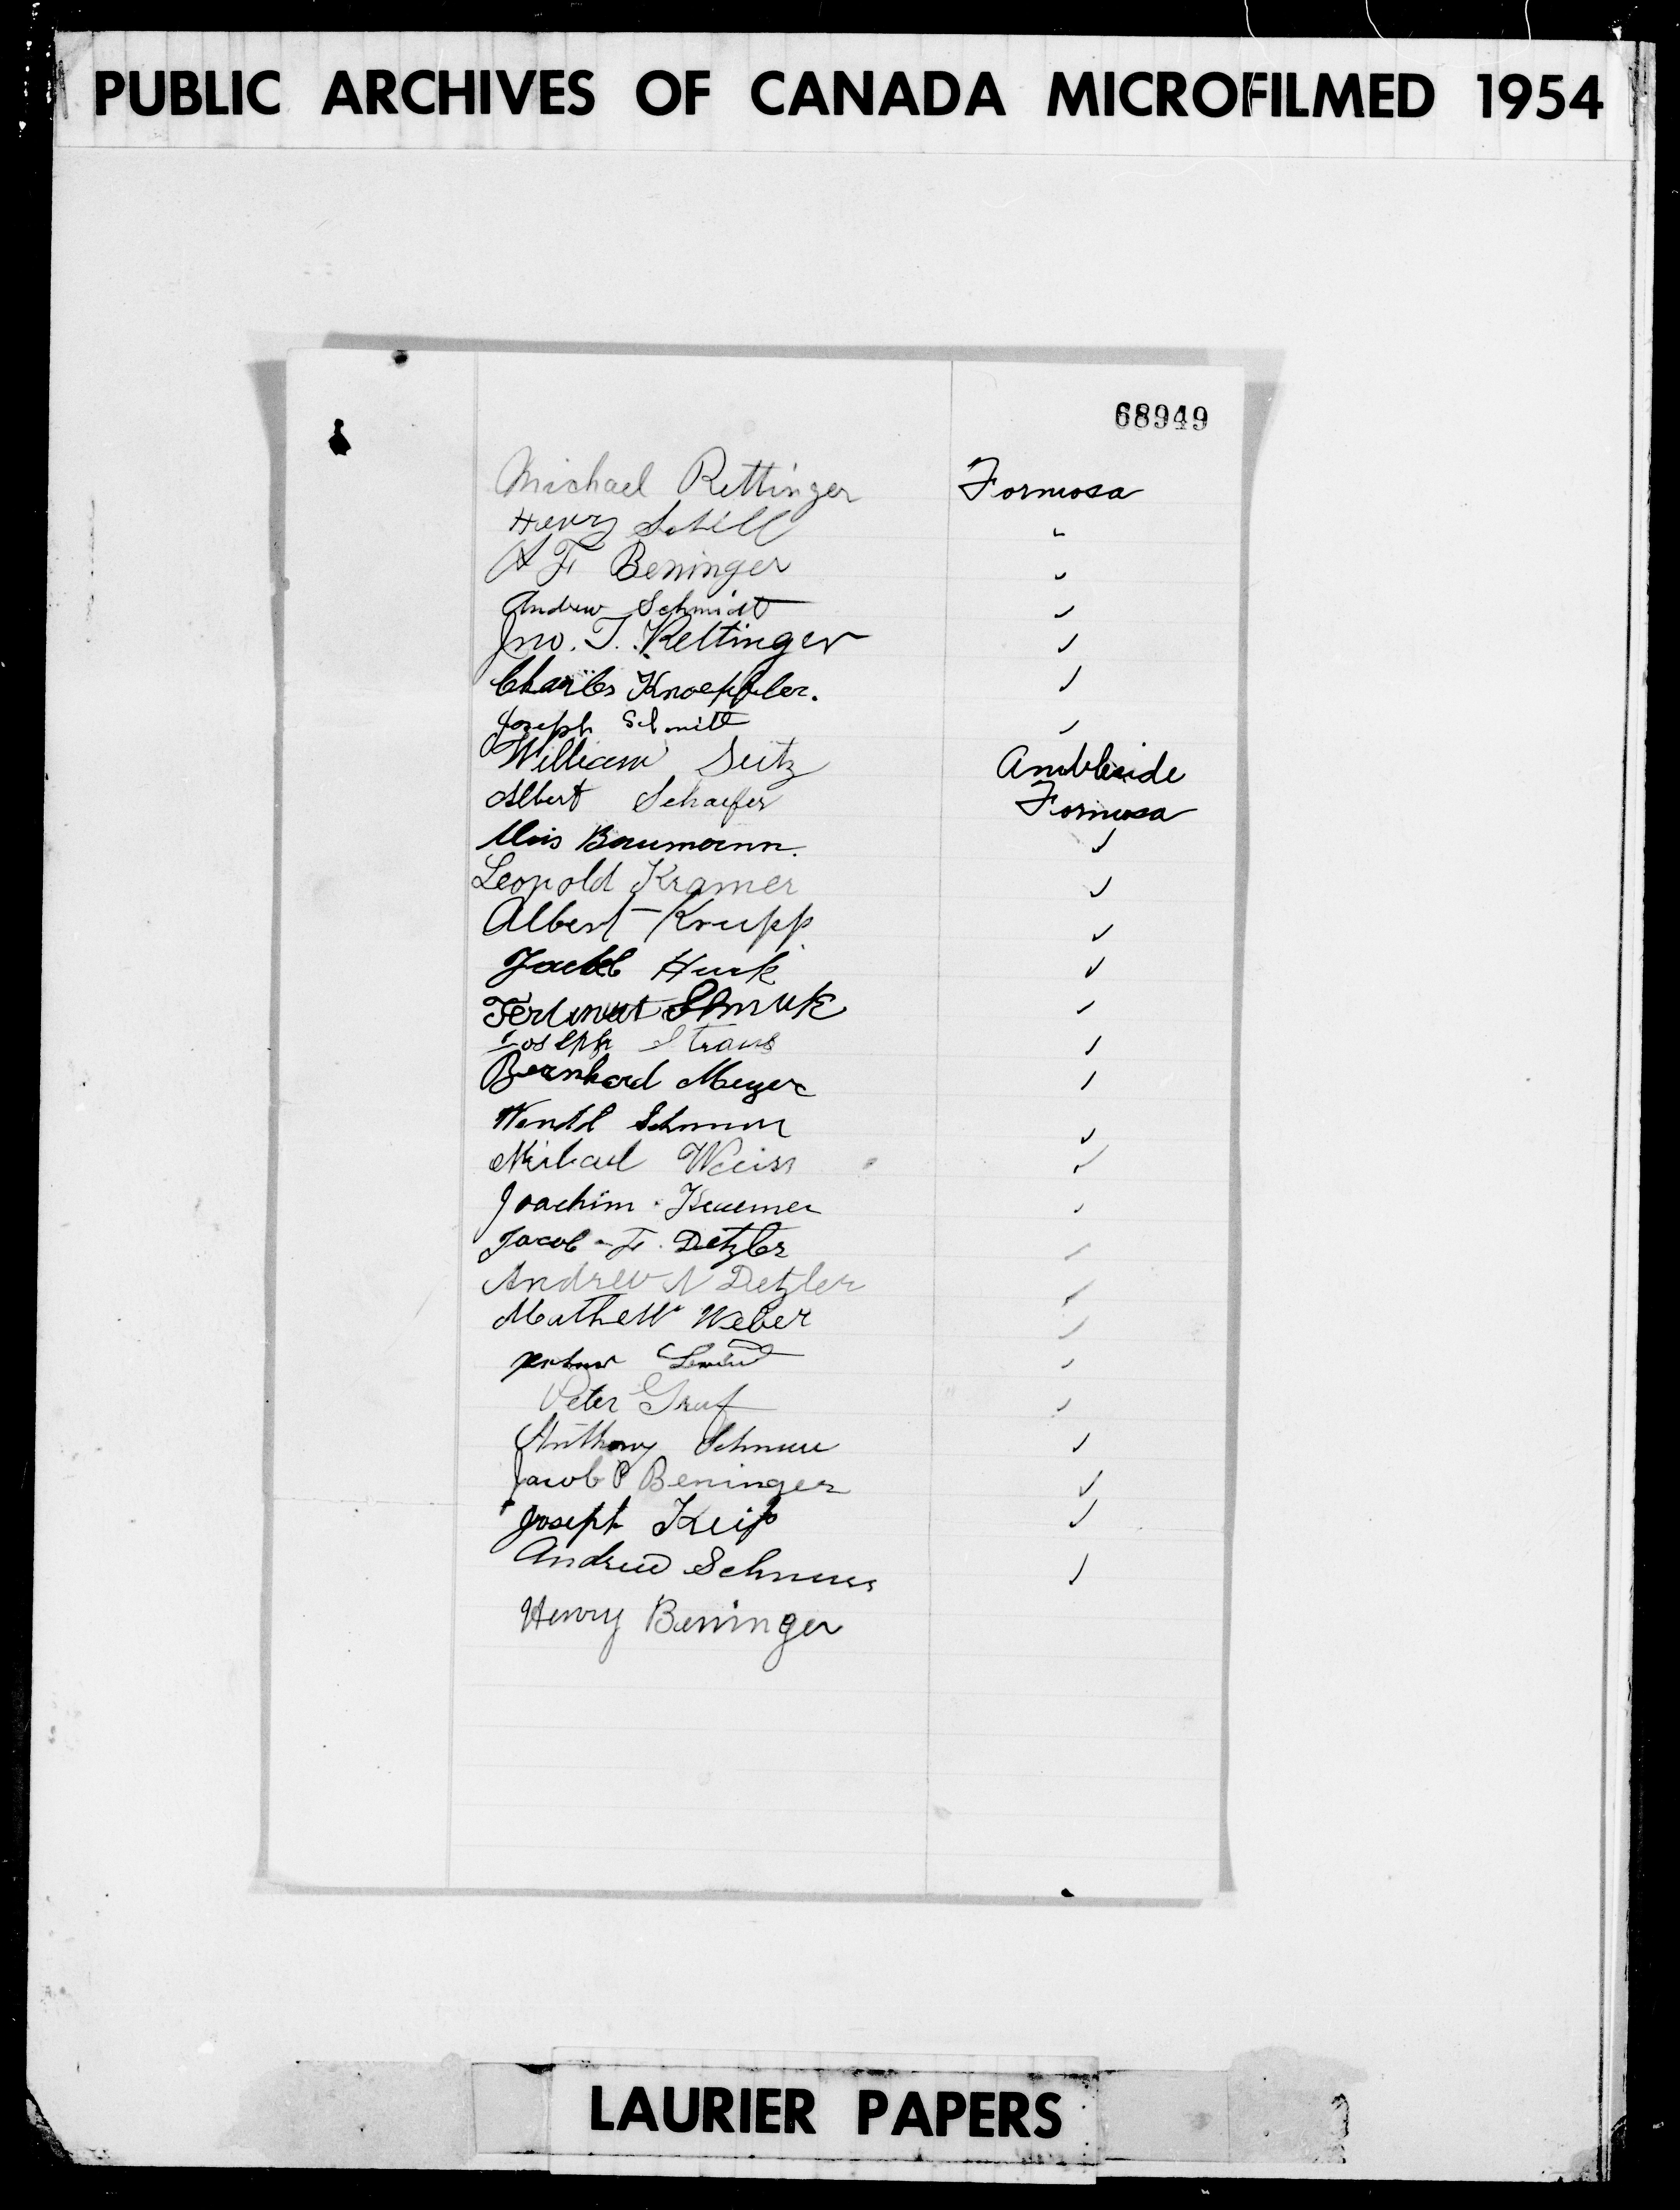 PUBLIC ARCHIVES OF CANADA MICROFILMED 1954
68949
Michael Rettinger Formosa
Henry Schill "
A F Beninger "
Andrew Schmidt "
Jno. T. Rettinger "
Charles Knoepfler. "
Joseph Schmitt "
William Seitz Ambleside
Albert Schaefer Formosa
Alois Baumann. "
Leopold Kramer "
Albert Krupp "
Jacob Huck "
Ferdinant "
Joseph Straus "
Bernhard Meyer "
Wendel "
Michael Weiss "
Joachim Kraemer "
Jacob F. Detzler "
Andrew N Detzler "
Mathew Weber "
"
Peter Graf "
Anthony Schnurr "
Jacob P Beninger "
Joseph Keip "
Andrew Schnurr "
Henry Beninger
LAURIER PAPERS